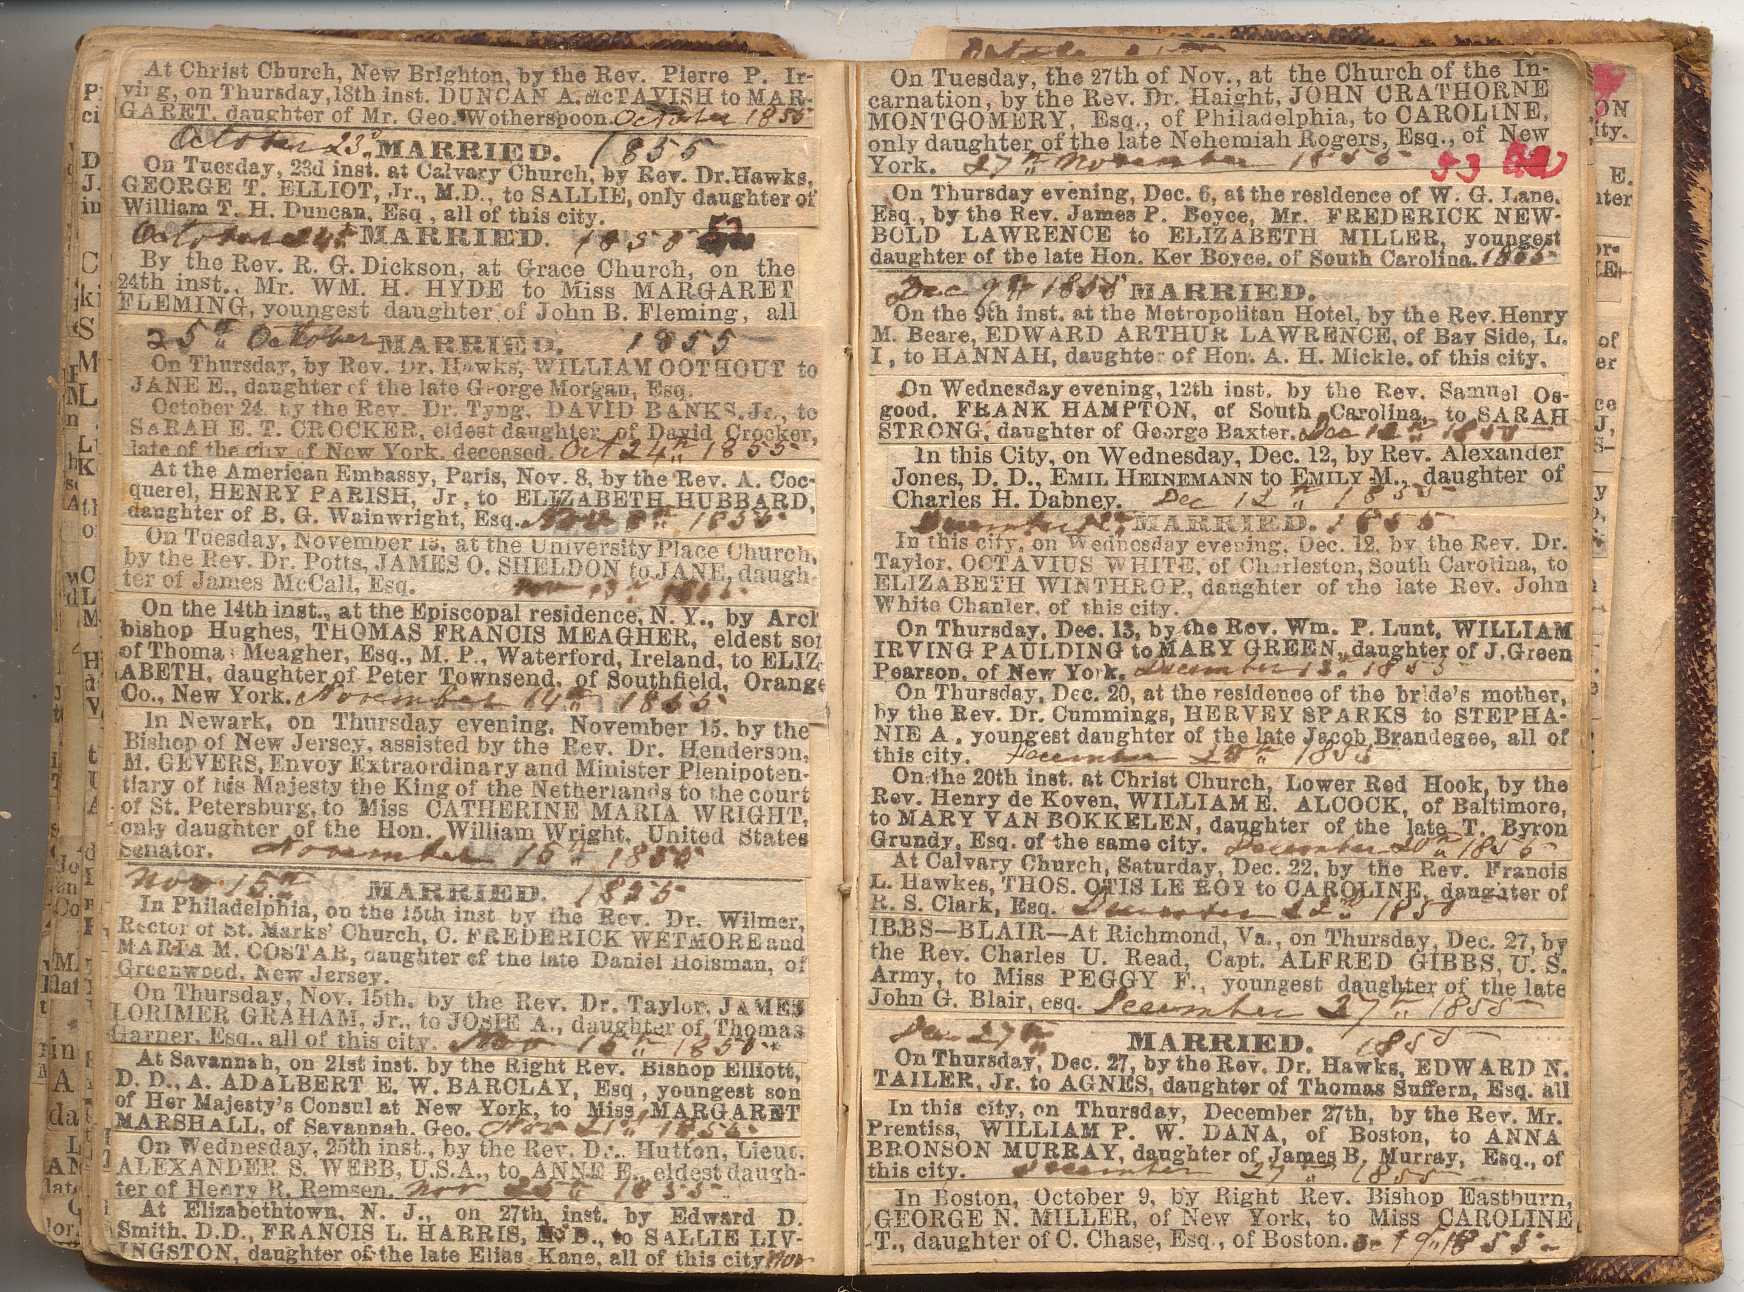 At Christ Church, New Brighton, by the Rev. Pierre P. Ir-
ving, on Thursday, 18th inst. DUNCAN A. McTAVISH to MAR-
GARET, daughter of Mr. Geo. Wotherspoon. October 1855
October 23d MARRIED. 1855
On Tuesday, 23d inst. at Calvary Church, by Rev. Dr. Hawks,
GEORGE T. ELLIOT, Jr., M.D., to SALLIE, only daughter of
William T. H. Duncan, Esq., all of this city.
October 24th MARRIED. 1855
By the Rev. R. G. Dickson, at Grace Church, on the
24th inst., Mr. WM. H. HYDE to Miss MARGARET
FLEMING, youngest daughter of John B. Fleming, all
25th October MARRIED. 1855
On Thursday, by Rev. Dr. Hawks, WILLIAM OOTHOUT to
JANE E., daughter of the late George Morgan, Esq.
October 24, by the Rev. Dr. Tyng, DAVID BANKS, Jr., to
SARAH E. T. CROCKER, eldest daughter of David Crocker,
late of the city of New York, deceased. Oct 24th 1855
At the American Embassy, Paris, Nov. 8, by the Rev. A. Coc-
querel, HENRY PARISH, Jr, to ELIZABETH HUBBARD,
daughter of B. G. Wainwright, Esq. Nov 8th 1855
On Tuesday, November 13, at the University Place Church,
by the Rev. Dr. Potts, JAMES O. SHELDON to JANE, daugh-
ter of James McCall, Esq. Nov 13th 1855
On the 14th inst., at the Episcopal residence, N. Y., by Arch
bishop Hughes, THOMAS FRANCIS MEAGHER, eldest son
of Thomas Meagher, Esq., M. P., Waterford, Ireland, to ELIZ-
ABETH, daughter of Peter Townsend, of Southfield, Orange
Co., New York. November 14th 1855
In Newark, on Thursday evening, November 15, by the
Bishop of New Jersey, assisted by the Rev. Dr. Henderson,
M. GEVERS, Envoy Extraordinary and Minister Plenipoten-
tiary of his Majesty the King of the Netherlands to the court
of St. Petersburg, to Miss CATHERINE MARIA WRIGHT,
only daughter of the Hon. William Wright, United States
Senator. November 15th 1855
Nov 15th MARRIED. 1855
In Philadelphia, on the 15th inst. by the Rev. Dr. Wilmer,
Rector of St. Marks' Church, C. FREDERICK WETMORE and
MARIA M. COSTAR, daughter of the late Daniel Holsman, of
Greenwood, New Jersey.
On Thursday, Nov. 15th, by the Rev. Dr. Taylor, JAMES
LORIMER GRAHAM, Jr., to JOSIE A., daughter of Thomas
Garner, Esq., all of this city. Nov 15th 1855
At Savannah, on 21st inst. by the Right Rev. Bishop Elliott,
D. D., A. ADALBERT E. W. BARCLAY, Esq, youngest son
of Her Majesty's Consul at New York, to Miss MARGARET
MARSHALL, of Savannah, Geo. Nov 21st 1855
On Wednesday, 25th inst., by the Rev. Dr. Hutton, Lieut.
ALEXANDER S. WEBB, U.S.A., to ANNE E., eldest daugh-
ter of Henry R. Remsen. Nov 25th 1855
At Elizabethtown, N. J., on 27th inst. by Edward D.
Smith, D.D., FRANCIS L. HARRIS, M.D., to SALLIE LIV-
INGSTON, daughter of the late Elias Kane, all of this city Nov
On Tuesday, the 27th of Nov., at the Church of the In-
carnation, by the Rev. Dr. Haight, JOHN CRATHORNE
MONTGOMERY, Esq., of Philadelphia, to CAROLINE,
only daughter of the late Nehemiah Rogers, Esq., of New
York. 27th November 1855 53
On Thursday evening, Dec. 6, at the residence of W. G. Lane,
Esq., by the Rev. James P. Boyce, Mr. FREDERICK NEW-
BOLD LAWRENCE to ELIZABETH MILLER, youngest
daughter of the late Hon. Ker Boyce, of South Carolina. 1855
Dec 9th 1855 MARRIED.
On the 9th inst. at the Metropolitan Hotel, by the Rev. Henry
M. Beare, EDWARD ARTHUR LAWRENCE, of Bay Side, L.
I, to HANNAH, daughter of Hon. A. H. Mickle, of this city.
On Wednesday evening, 12th inst. by the Rev. Samuel Os-
good, FRANK HAMPTON, of South Carolina, to SARAH
STRONG, daughter of George Baxter. Dec 12th 1855
In this City, on Wednesday, Dec. 12, by Rev. Alexander
Jones, D. D., EMIL HEINEMANN to EMILY M., daughter of
Charles H. Dabney. Dec 12th 1855
December 12th MARRIED. 1855
In this city, on Wednesday evening, Dec. 12, by the Rev. Dr.
Taylor, OCTAVIUS WHITE, of Charleston, South Carolina, to
ELIZABETH WINTHROP, daughter of the late Rev. John
White Chanler, of this city.
On Thursday, Dec. 13, by the Rev. Wm. P. Lunt, WILLIAM
IRVING PAULDING to MARY GREEN, daughter of J. Green
Pearson, of New York. December 13th 1855
On Thursday, Dec. 20, at the residence of the bride's mother,
by the Rev. Dr. Cummings, HERVEY SPARKS to STEPHA-
NIE A, youngest daughter of the late Jacob Brandegee, all of
this city. December 20th 1855
On the 20th inst. at Christ Church, Lower Red Hook, by the
Rev. Henry de Koven, WILLIAM E. ALCOCK, of Baltimore,
to MARY VAN BOKKELEN, daughter of the late T. Byron
Grundy, Esq. of the same city. December 20th 1855
At Calvary Church, Saturday, Dec. 22, by the Rev. Francis
L. Hawkes, THOS. OTIS LE ROY to CAROLINE, daughter of
R. S. Clark, Esq. December 22nd 1855
IBBS—BLAIR—At Richmond, Va., on Thursday, Dec. 27, by
the Rev. Charles U. Read, Capt. ALFRED GIBBS, U. S.
Army, to Miss PEGGY F., youngest daughter of the late
John G. Blair, esq. December 27th 1855
Dec 27th MARRIED. 1855
On Thursday, Dec. 27, by the Rev. Dr. Hawks, EDWARD N.
TAILER, Jr. to AGNES, daughter of Thomas Suffern, Esq. all
In this city, on Thursday, December 27th, by the Rev. Mr.
Prentiss, WILLIAM P. W. DANA, of Boston, to ANNA
BRONSON MURRAY, daughter of James B. Murray, Esq., of
this city. December 27th 1855
In Boston, October 9, by Right Rev. Bishop Eastburn,
GEORGE N. MILLER, of New York, to Miss CAROLINE
T., daughter of C. Chase, Esq., of Boston. Oct 9th 1855